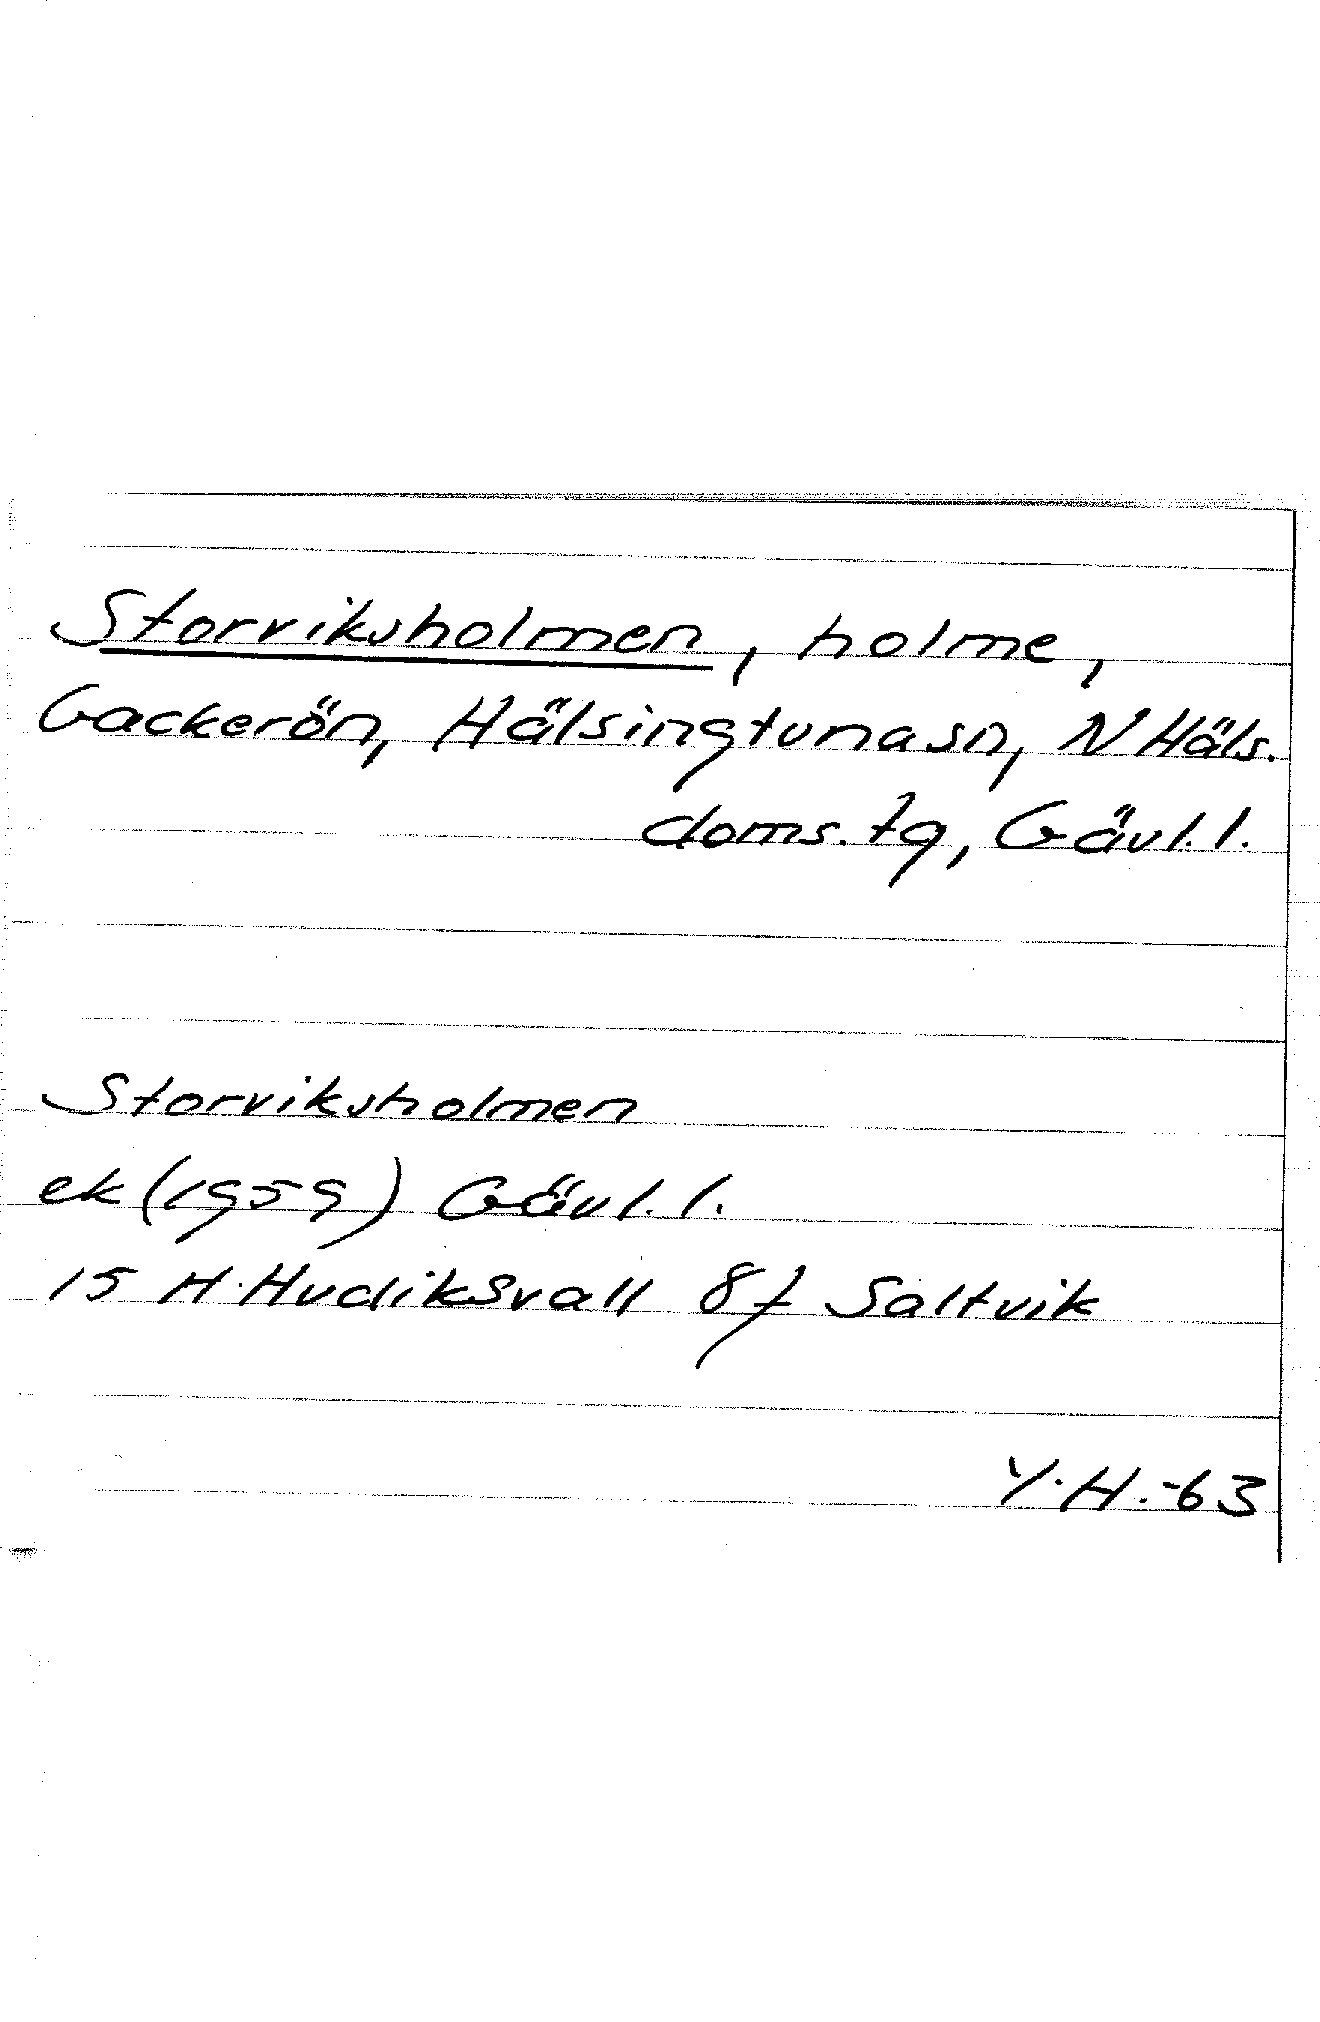 Storviksholmen, holme,
Gackerön, Hälsingtuna sn, N Häls.
doms. tg, Gävl. l.
Storviksholmen
ek (1959) Gävl. l.
15 H Hudiksvall 8f Saltvik
Y. H. -63